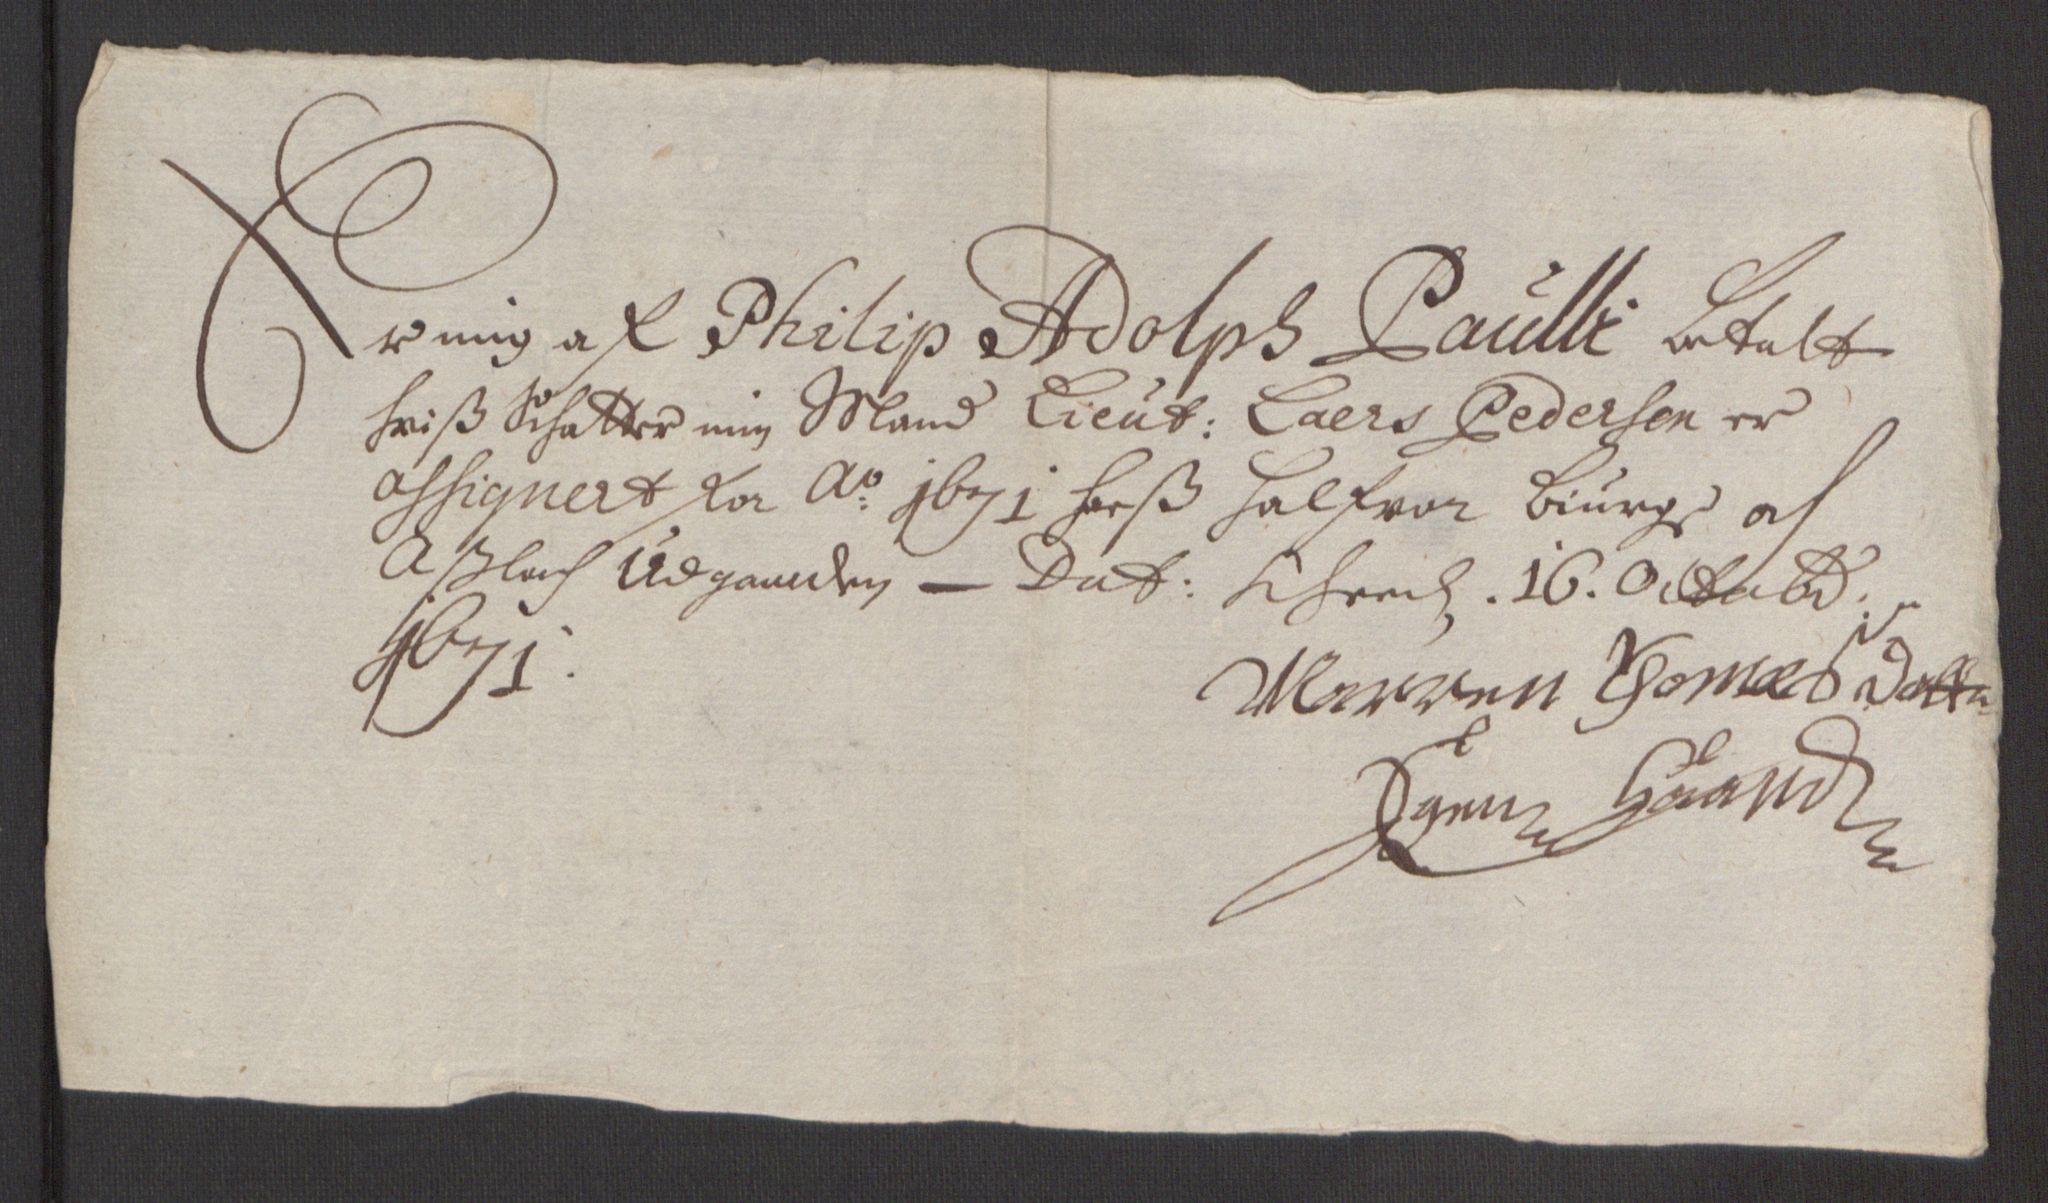 Er mig af Philip Adolph Paulli betalt
hviß Schatter min Mand Lieut: Laers Pedersen er
assignert for Ao. 1671 hoeß Halfvor Biurgs af
Aßlach Udganden — Dat: 16. Octobr:
1671.
Marren Thomæs Datter
Egen Haand